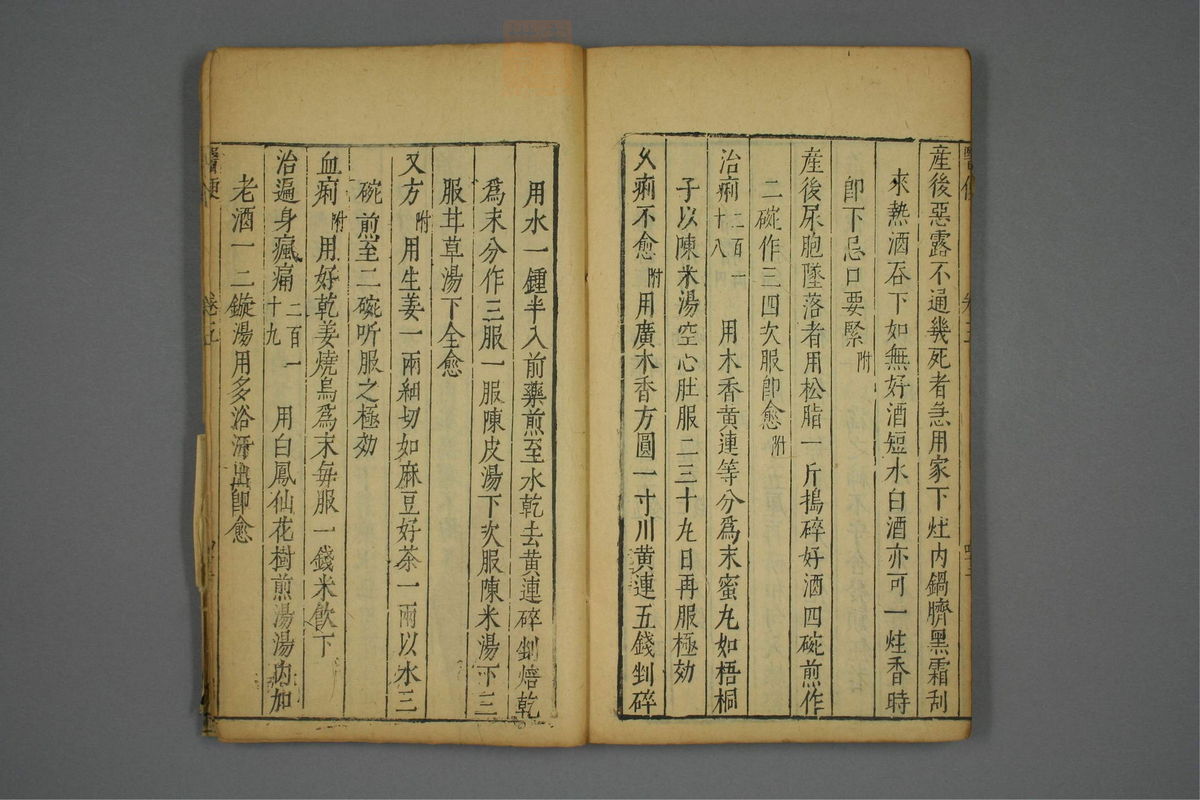 産後惡露不通幾死者急用家下灶内鍋臍黑霜刮
來熱酒吞下如無好酒短水白酒亦可一炷香時
卽下忌口要緊附
産後尿胞墜落者用松脂一斤搗碎好酒四碗煎作
二碗作三四次服卽愈附
治痢二百一十八 用木香黄連等分爲末蜜丸如梧桐
子以陳米湯空心肚服二三十丸日再服極効
久痢不愈附用廣木香方圓一寸川黄連五錢剉碎
用水一鍾半入前藥煎至水乾去黄連碎剉焙乾
爲末分作三服一服陳皮湯下次服陳米湯下三
服甘草湯下全愈
又方附用生姜一兩細切如麻豆好茶一兩以水三
碗煎至二碗听服之極効
血痢附用好乾姜燒烏爲末每服一錢米飲下
治遍身瘋痛二百一十九 用白鳳仙花樹煎湯湯内加
老酒一二鏇湯用多浴汗出卽愈
醫便 卷五